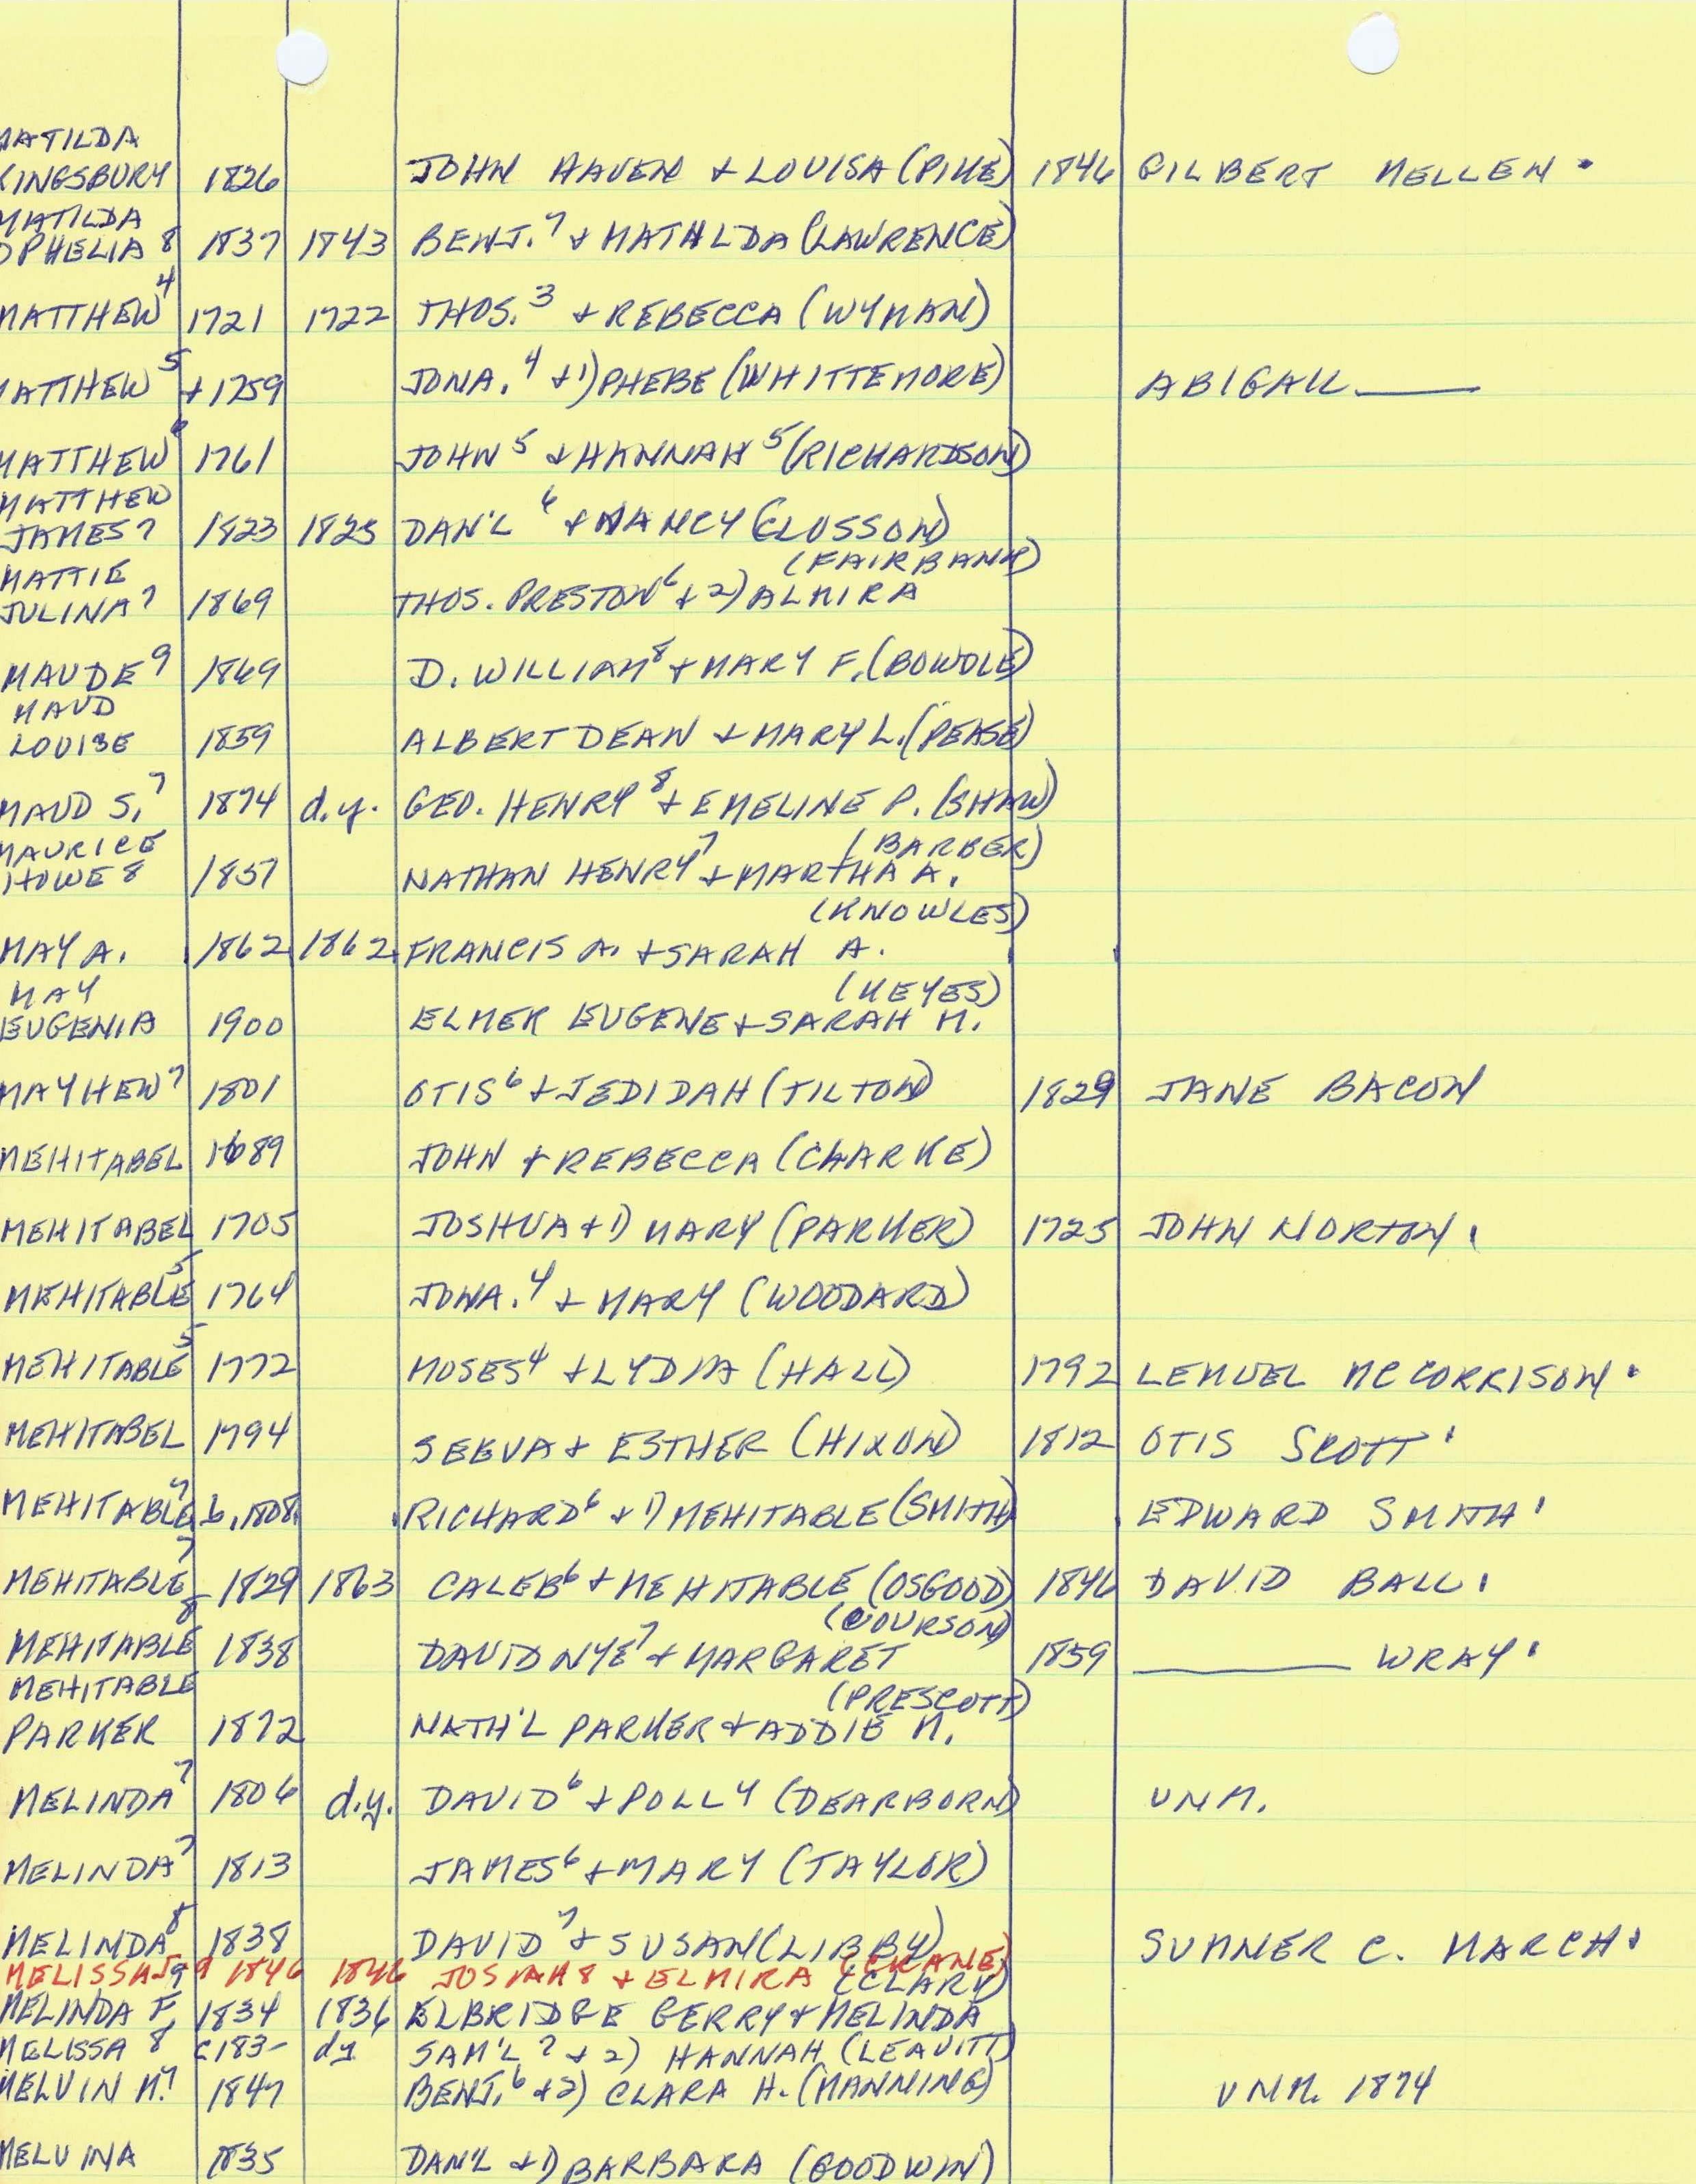 MATILDA
KINGSBURY 1826 JOHN HAVEN + LOUISA (PIKE) 1846 GILBERT MELLEN.
MATILDA
OPHELIA 8 1837 1843 BENJ. 7 + MATHLDA (LAWRENCE)
MATTHEW 4 1721 1722 THOS. 3 + REBECCA (WYMAN)
MATTHEW 5 + 1759 JONA. 4 + 1) PHEBE (WHITTEMORE) ABIGAIL ____
MATTHEW 6 1761 JOHN 5 + HANNAH 5 (RICHARDSON)
MATTHEW
JAMES 7 1823 1825 DAN'L 6 + NANCY (CLOSSON)
MATTIE (FAIRBANK)
JULINA 7 1869 THOS. PRESTON 6 + 2) ALMIRA
MAUDE 9 1869 D. WILLIAM 8 + MARY F. (BOWDLE)
MAUD
LOUISE 1859 ALBERT DEAN + MARY L. (PEASE)
MAUD S. 7 1874 d.y. GEO. HENRY 8 + EMELINE P. (SHAW)
MAURICE (BARBER)
HOWE 8 1857 NATHAN HENRY 7 + MARTHA A.
(KNOWLES)
MAY A. 1862 1862 FRANCIS A. + SARAH A.
MAY (KEYES)
EUGENIA 1900 ELMER EUGENE + SARAH M.
MAYHEW 7 1801 OTIS 6 + JEDIDAH (TILTON) 1829 JANE BACON
MEHITABEL 1689 JOHN + REBECCA (CLARKE)
MEHITABEL 1705 JOSHUA + 1) MARY (PARKER) 1725 JOHN NORTON.
MEHITABLE 5 1764 JONA. 4 + MARY (WOODARD)
MEHITABLE 5 1772 MOSES 4 + LYDIA (HALL) 1792 LEMUEL MCCORRISON.
MEHITABEL 1794 SEEVA + ESTHER (HIXON) 1812 OTIS SCOTT.
MEHITABLE 7 b. 1808. RICHARD 6 + 1) MEHITABLE (SMITH) EDWARD SMITH.
MEHITABLE 7 - 1829 1863 CALEB 6 + MEHITABLE (OSGOOD) 1846 DAVID BALL.
(COURSON)
MEHITABLE 8 1838 DAVID NYE 7 + MARGARET 1859 ____ WRAY.
MEHITABLE (PRESCOTT)
PARKER 1872 NATH'L PARKER + ADDIE M.
MELINDA 7 1806 d.y. DAVID 6 + POLLY (DEARBORN) UNM.
MELINDA 7 1813 JAMES 6 + MARY (TAYLOR)
MELINDA 8 1838 DAVID 7 + SUSAN (LIBBY) SUMNER C. MARCH.
MELISSA J. 9 1846 1846 JOSIAH 8 + ELMIRA (CRANE)
(CLARK)
MELINDA F. 1834 1836 ELBRIDGE GERRY + MELINDA
MELISSA 8 c183- dy SAM'L 7 + 2) HANNAH (LEAVITT)
MELVIN M. 7 1847 BENJ. 6 + 2) CLARA H. (MANNING) UNM. 1874
MELVINA 1835 DAN'L + 1) BARBARA (GOODWIN)